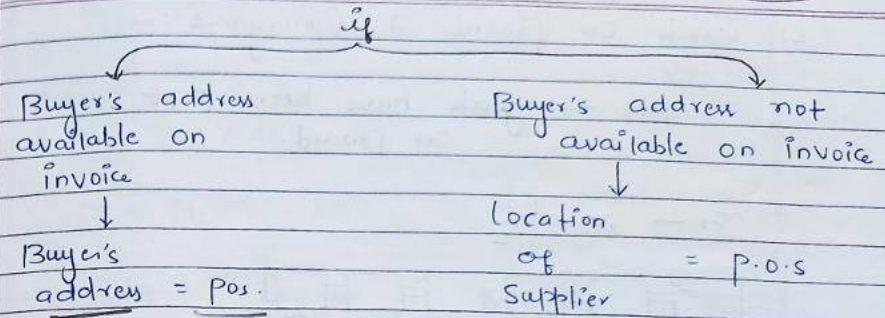 if
Buyer's address
available on
invoice
Buyer's
address = pos.
Buyer's address not
available on invoice
location
of = p.o.s
Supplier